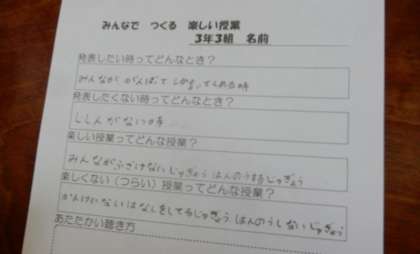 みんなで つくる 楽しい授業
3年3組 名前
発表したい時ってどんなとき？
みんなが がんばって
発表したくない時ってどんなとき？
じしんがない時
楽しい授業ってどんな授業？
みんながふざけないじゅぎょう はんのうするじゅぎょう
楽しくない（つらい）授業ってどんな授業？
かんけいないはなしをしてるじゅぎょう はんのうしないじゅぎょう
あたたかい聴き方